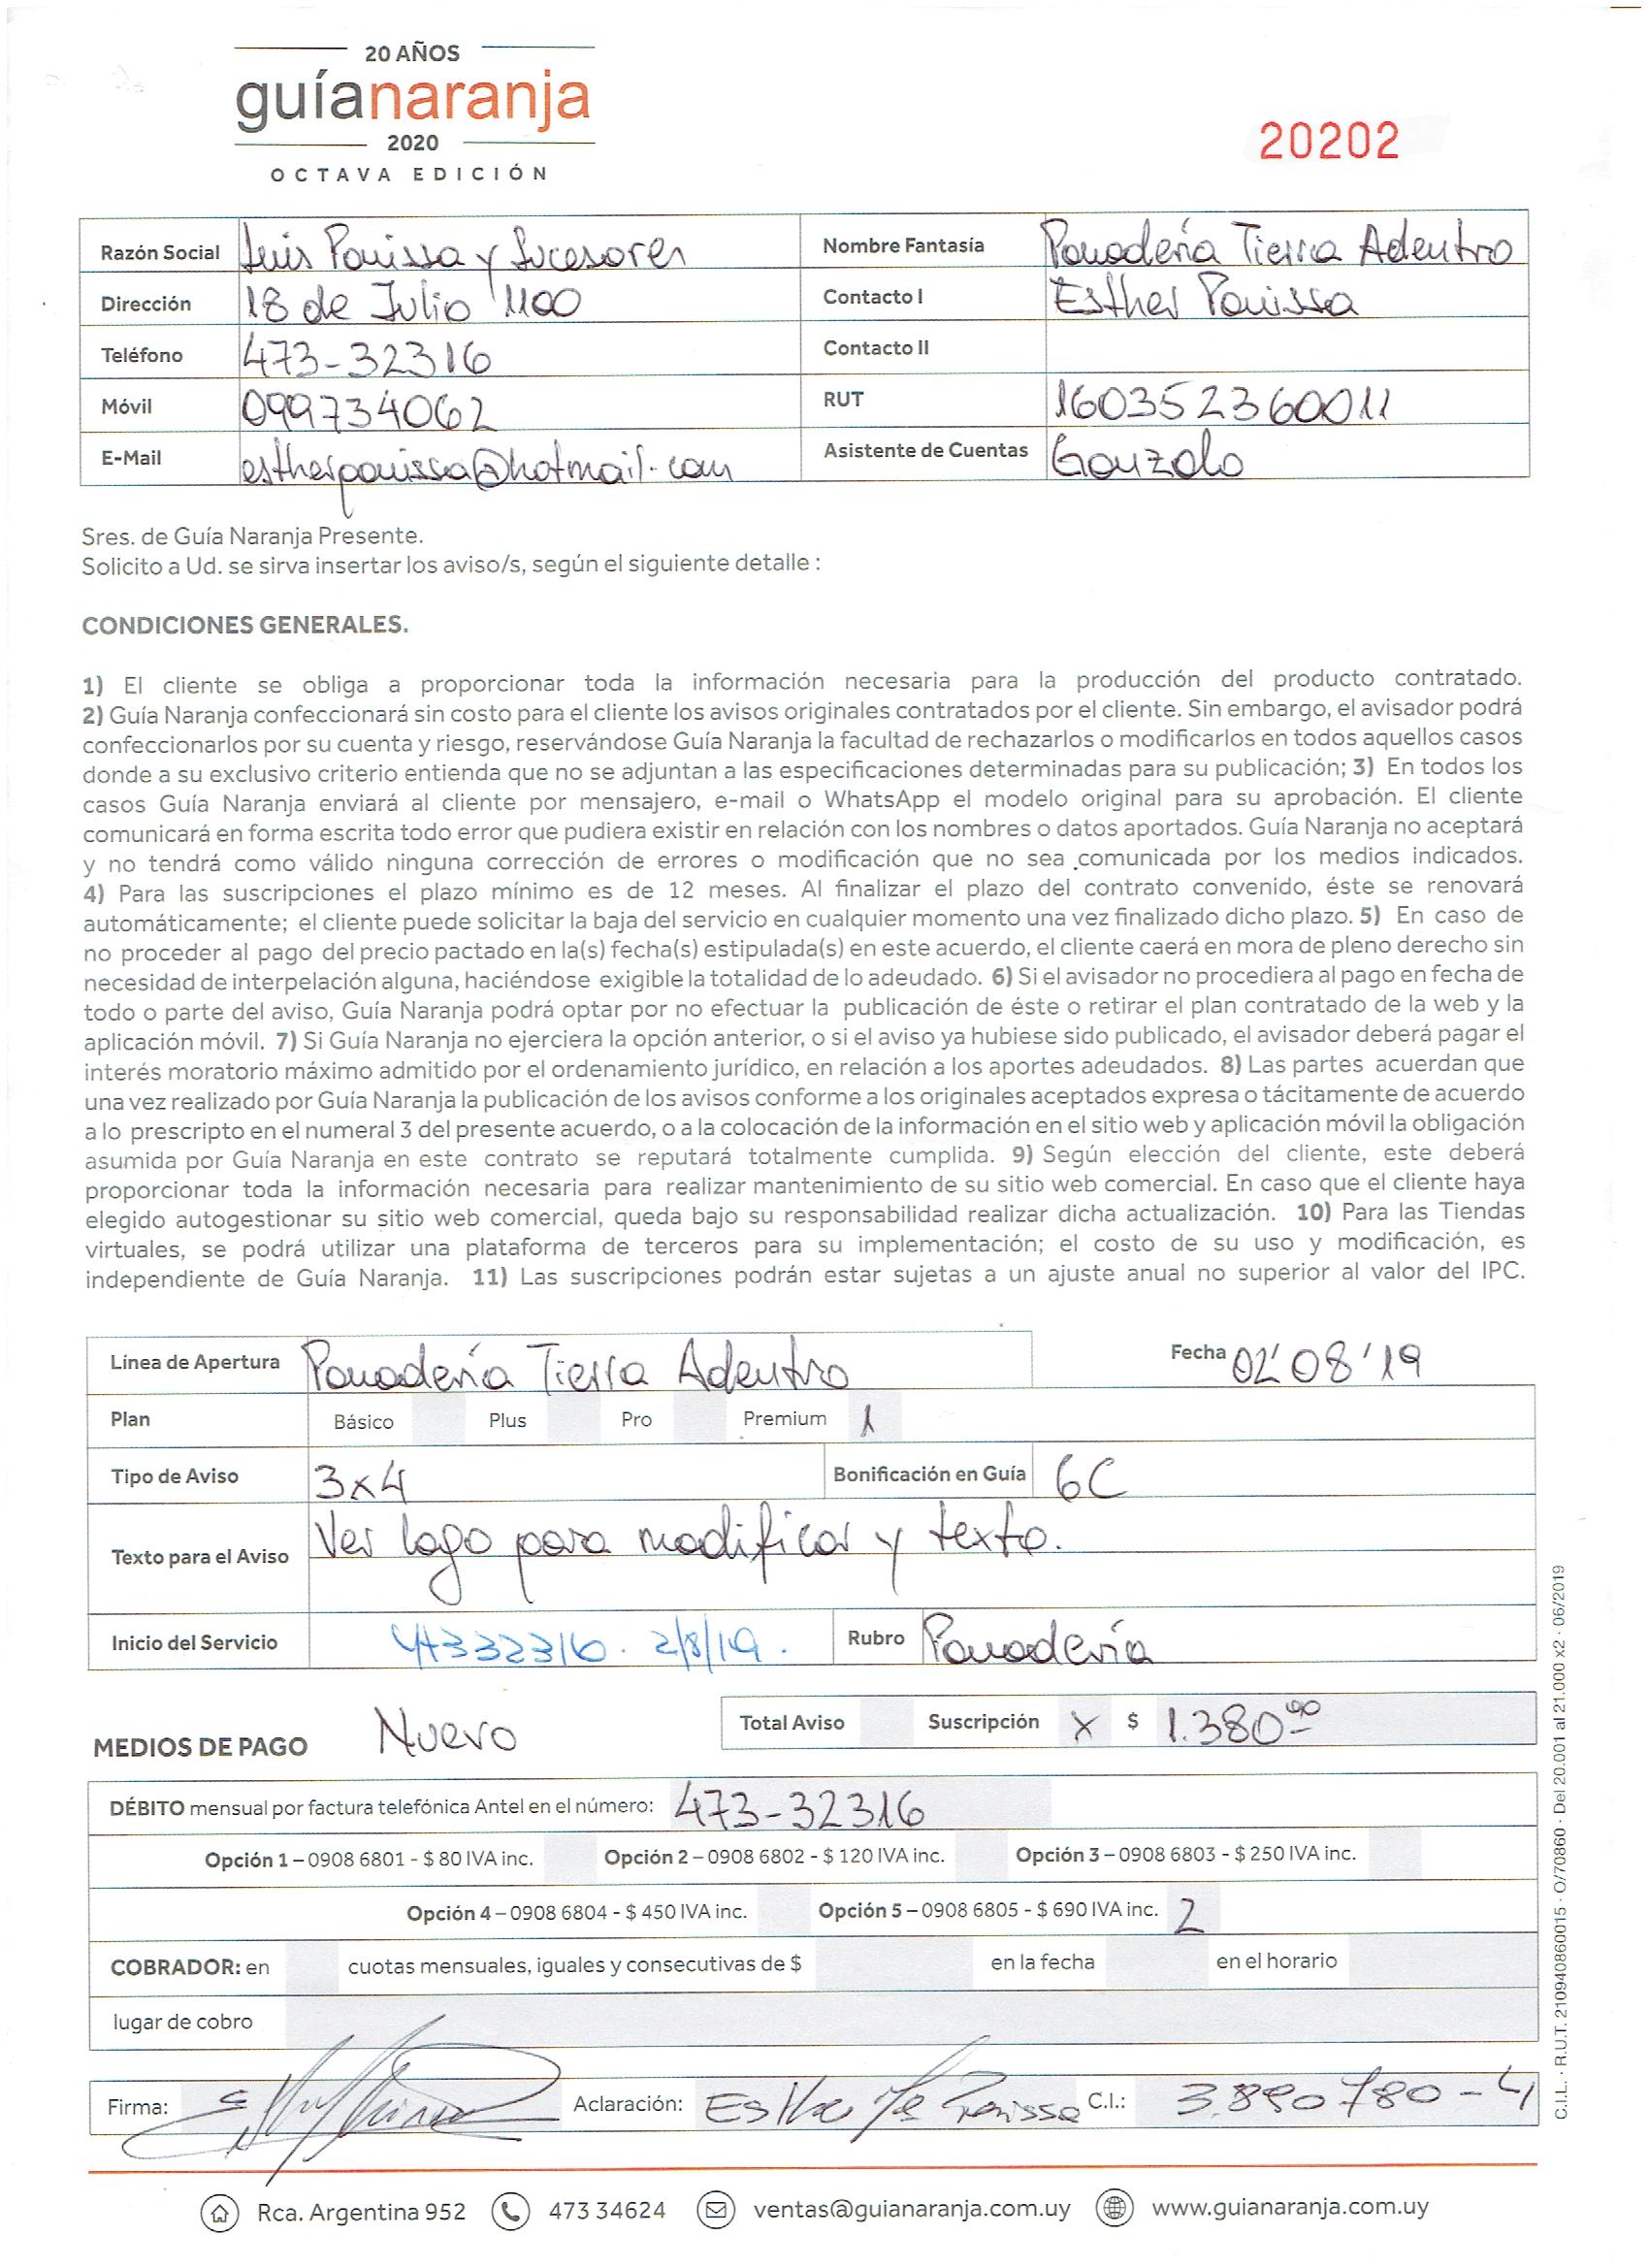 20 AÑOS
guíanaranja
2020
OCTAVA EDICIÓN
20202
Razón Social Luis Pouissa y Sucesores Nombre Fantasía Panadería Tierra Adentro
Dirección 18 de Julio 1100 Contacto I Esther Pouissa
Teléfono 473-32316 Contacto II
Móvil 099734062 RUT 160352360011
E-Mail estherpouissa@hotmail.com Asistente de Cuentas Gonzalo
Sres. de Guía Naranja Presente.
Solicito a Ud. se sirva insertar los aviso/s, según el siguiente detalle :
CONDICIONES GENERALES.
1) El cliente se obliga a proporcionar toda la información necesaria para la producción del producto contratado.
2) Guía Naranja confeccionará sin costo para el cliente los avisos originales contratados por el cliente. Sin embargo, el avisador podrá
confeccionarlos por su cuenta y riesgo, reservándose Guía Naranja la facultad de rechazarlos o modificarlos en todos aquellos casos
donde a su exclusivo criterio entienda que no se adjuntan a las especificaciones determinadas para su publicación; 3) En todos los
casos Guía Naranja enviará al cliente por mensajero, e-mail o WhatsApp el modelo original para su aprobación. El cliente
comunicará en forma escrita todo error que pudiera existir en relación con los nombres o datos aportados. Guía Naranja no aceptará
y no tendrá como válido ninguna corrección de errores o modificación que no sea comunicada por los medios indicados.
4) Para las suscripciones el plazo mínimo es de 12 meses. Al finalizar el plazo del contrato convenido, éste se renovará
automáticamente; el cliente puede solicitar la baja del servicio en cualquier momento una vez finalizado dicho plazo. 5) En caso de
no proceder al pago del precio pactado en la(s) fecha(s) estipulada(s) en este acuerdo, el cliente caerá en mora de pleno derecho sin
necesidad de interpelación alguna, haciéndose exigible la totalidad de lo adeudado. 6) Si el avisador no procediera al pago en fecha de
todo o parte del aviso, Guía Naranja podrá optar por no efectuar la publicación de éste o retirar el plan contratado de la web y la
aplicación móvil. 7) Si Guía Naranja no ejerciera la opción anterior, o si el aviso ya hubiese sido publicado, el avisador deberá pagar el
interés moratorio máximo admitido por el ordenamiento jurídico, en relación a los aportes adeudados. 8) Las partes acuerdan que
una vez realizado por Guía Naranja la publicación de los avisos conforme a los originales aceptados expresa o tácitamente de acuerdo
a lo prescripto en el numeral 3 del presente acuerdo, o a la colocación de la información en el sitio web y aplicación móvil la obligación
asumida por Guía Naranja en este contrato se reputará totalmente cumplida. 9) Según elección del cliente, este deberá
proporcionar toda la información necesaria para realizar mantenimiento de su sitio web comercial. En caso que el cliente haya
elegido autogestionar su sitio web comercial, queda bajo su responsabilidad realizar dicha actualización. 10) Para las Tiendas
virtuales, se podrá utilizar una plataforma de terceros para su implementación; el costo de su uso y modificación, es
independiente de Guía Naranja. 11) Las suscripciones podrán estar sujetas a un ajuste anual no superior al valor del IPC.
Línea de Apertura Panadería Tierra Adentro Fecha 02'08'19
Plan Básico Plus Pro Premium 1
Tipo de Aviso 3x4 Bonificación en Guía 6C
Texto para el Aviso Ver logo para modificar y texto.
Inicio del Servicio 47332316. 2/8/19. Rubro Panadería
MEDIOS DE PAGO Nuevo Total Aviso Suscripción X $ 1.380,00
DÉBITO mensual por factura telefónica Antel en el número: 473-32316
Opción 1 – 0908 6801 - $ 80 IVA inc. Opción 2 – 0908 6802 - $ 120 IVA inc. Opción 3 – 0908 6803 - $ 250 IVA inc.
Opción 4 – 0908 6804 - $ 450 IVA inc. Opción 5 – 0908 6805 - $ 690 IVA inc. 2
COBRADOR: en cuotas mensuales, iguales y consecutivas de $ en la fecha en el horario
lugar de cobro
Firma: Aclaración: Esther C.I.: 3.890780-4
Rca. Argentina 952 473 34624 ventas@guianaranja.com.uy www.guianaranja.com.uy
C.I.L. · R.U.T. 210940860015 · O/70860 · Del 20.001 al 21.000 x2 · 06/2019